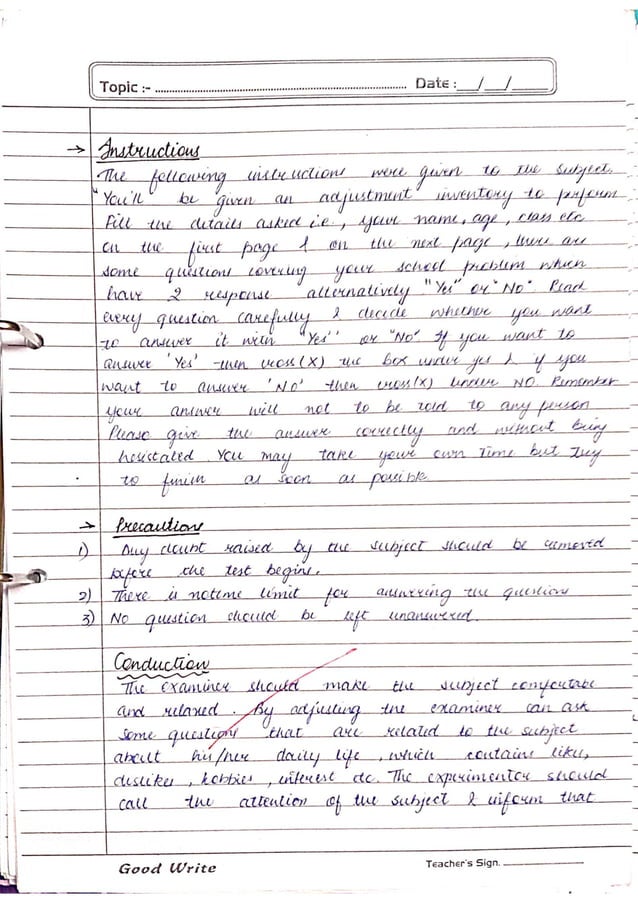 Topic :- ........ Date : __/__/____
→ Instructions
The following instructions were given to the subject.
"You'll be given an adjustment inventory to perform
Fill the details asked i.e., your name, age, class etc
on the first page & on the next page, there are
some questions covering your school problem which
have 2 response alternatively "Yes" or "No". Read
every question carefully & decide whether you want
to answer it with "Yes" or "No" If you want to
answer 'Yes' then cross (X) the box under yes & if you
want to answer 'No' then cross (X) under NO. Remember
your answer will not to be told to any person
Please give the answer correctly and without being
hesistated. You may take your own time but try
to finish as soon as possible
→ Precautions
1) Any doubt raised by the subject should be removed
before the test begins.
2) There is notime limit for answering the question
3) No question should be left unanswered.
Conduction
The examiner should make the subject comfortable
and relaxed. By adjusting the examiner can ask
some questions that are related to the subject
about his/her daily life, which contains likes,
dislikes, hobbies, interest etc. The experimentor should
call the attention of the subject & inform that
Good Write Teacher's Sign. ________